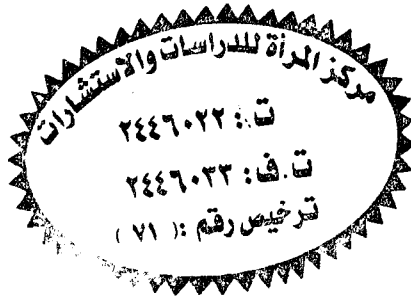 مركز المرأة للدراسات والاستشارات
ت : ٢٤٤٦٠٢٢
ت . ف : ٢٤٤٦٠٣٣
ترخيص رقم : ( ٧١ )